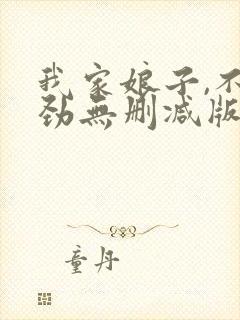 我家娘子,不
劲無删减版
童丹